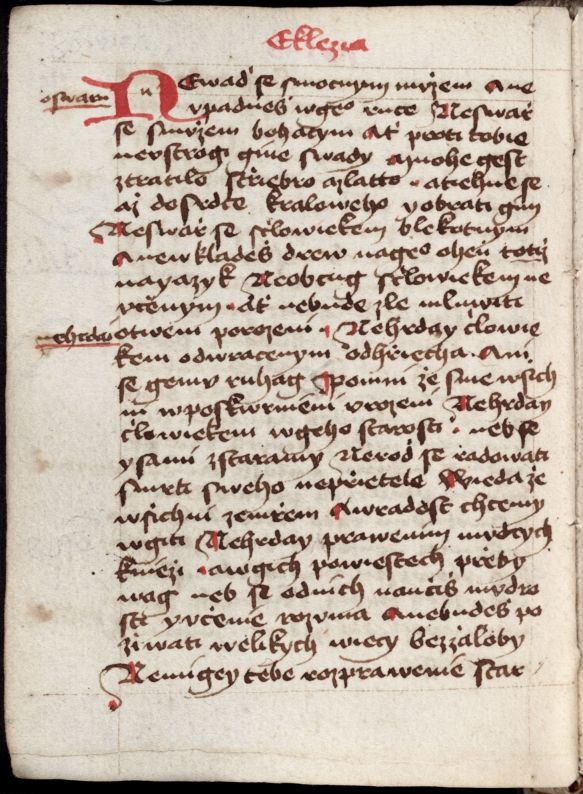 Eklezia
oswaru
NEwaď se smocnym mużem Ane
vpadneš wgeo ruce Neswař
se smużem bohatym Ať proti tobie
nevstrogi gine swady amohe gest
ztratilo střiebro azlatto atiehnese
aż dosrdce kraloweho yobrati gim
Neswař se sčlowiekem blekotnym
Anewkladeš drew nageo oheň totiż
nayazyk Neobcug sčlowiekem ne
včenym ať nebude zle mluwiti
nehrday
otwem porozeni Nehrday člowie
kem odwracenym odhřiecha Ani
se gemu ruhag Pomni że sme wsich
ni wposkwrnieni vrozeni Nehrday
člowiekem wgeho starosti neb se
ysami zstaramy Neroď se radowati
smrti sweho neprietele Wieda że
wsichni zemřem Awradost chcemy
wgiti Nehrday prawenim mudrych
kniezi awgich powiestech přeby
wag neb se odnich naučiš mudro
sti yvčenie rozuma Anebudeš po
żiwati welikych wiecy bezżaloby
Neniigey tebe rozprawenie star